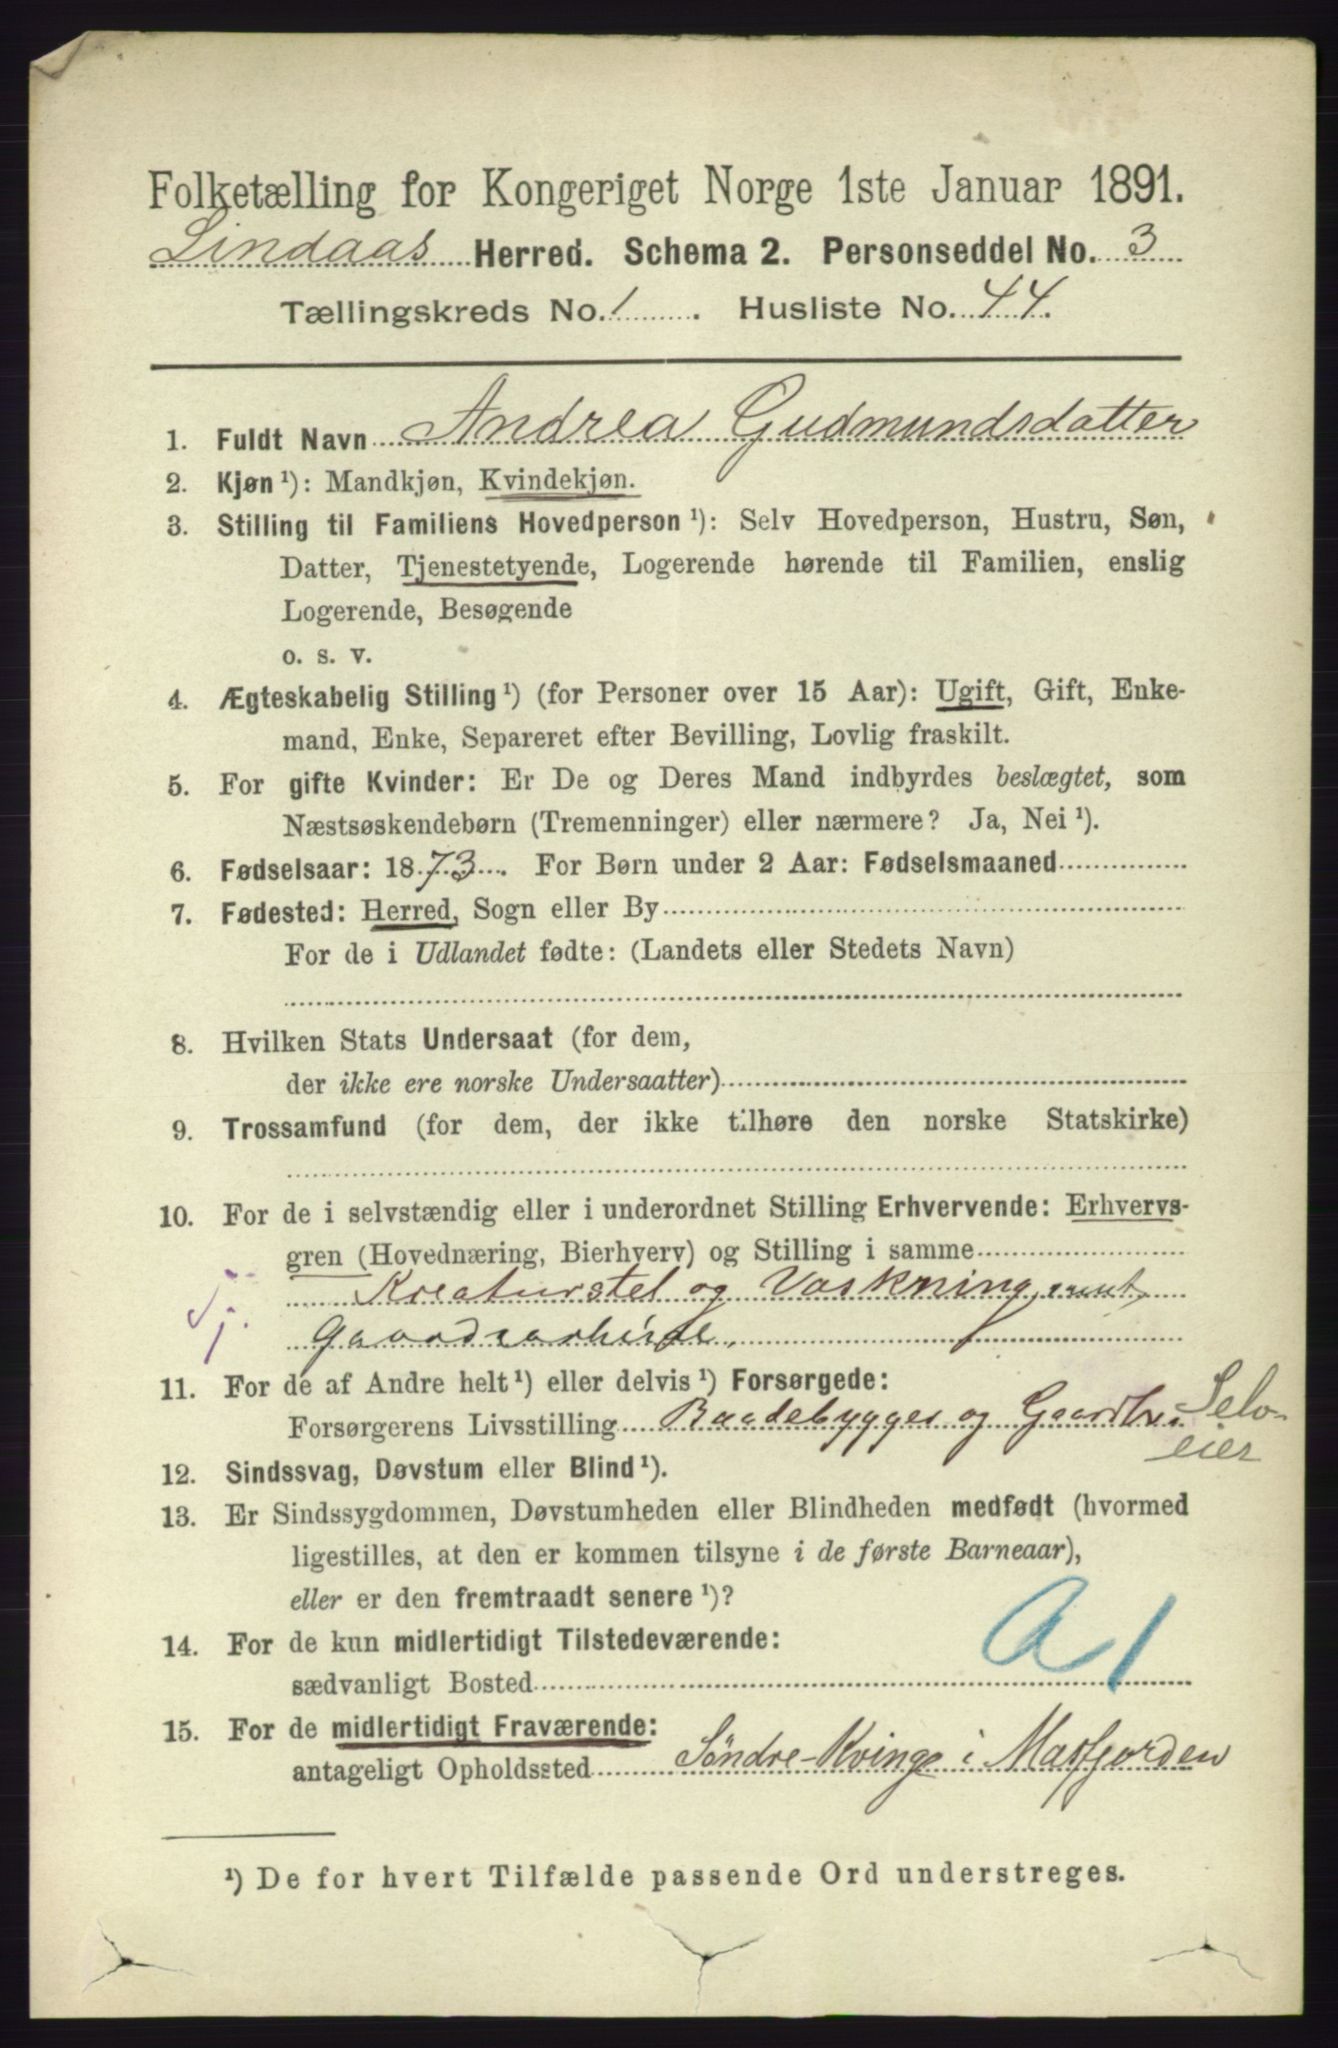 Folketælling for Kongeriget Norge 1ste Januar 1891.
Lindaas Herred. Schema 2. Personseddel No. 3
Tællingskreds No. 1 . Husliste No. 44.
1. Fuldt Navn Andrea Gudmundsdatter
2. Kjøn ¹): Mandkjøn, Kvindekjøn.
3. Stilling til Familiens Hovedperson ¹): Selv Hovedperson, Hustru, Søn,
Datter, Tjenestetyende, Logerende hørende til Familien, enslig
Logerende, Besøgende
o. s. v.
4. Ægteskabelig Stilling ¹) (for Personer over 15 Aar): Ugift, Gift, Enke-
mand, Enke, Separeret efter Bevilling, Lovlig fraskilt.
5. For gifte Kvinder: Er De og Deres Mand indbyrdes beslægtet, som
Næstsøskendebørn (Tremenninger) eller nærmere? Ja, Nei ¹).
6. Fødselsaar: 1873. For Børn under 2 Aar: Fødselsmaaned
7. Fødested: Herred, Sogn eller By
For de i Udlandet fødte: (Landets eller Stedets Navn)
8. Hvilken Stats Undersaat (for dem,
der ikke ere norske Undersaatter)
9. Trossamfund (for dem, der ikke tilhøre den norske Statskirke)
10. For de i selvstændig eller i underordnet Stilling Erhvervende: Erhvervs-
gren (Hovednæring, Bierhverv) og Stilling i samme
Kreaturstel og Vaskning, samt
Gaardsarbeide.
11. For de af Andre helt ¹) eller delvis ¹) Forsørgede:
Forsørgerens Livsstilling Baadebygger og Gaardbr. Selv-
eier
12. Sindssvag, Døvstum eller Blind ¹).
13. Er Sindssygdommen, Døvstumheden eller Blindheden medfødt (hvormed
ligestilles, at den er kommen tilsyne i de første Barneaar),
eller er den fremtraadt senere ¹)?
A 1
14. For de kun midlertidigt Tilstedeværende:
sædvanligt Bosted
15. For de midlertidigt Fraværende:
antageligt Opholdssted Söndre-Kvinge i Masfjorden
¹) De for hvert Tilfælde passende Ord understreges.